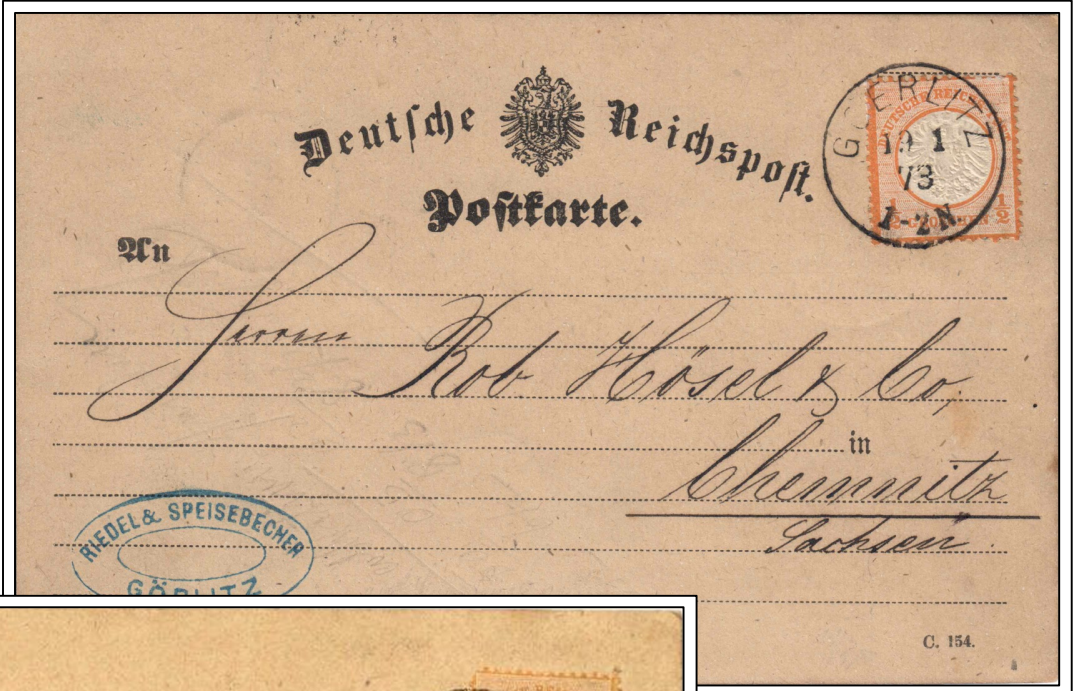 Deutsche Reichspost.
Postkarte.
GOERLITZ
19 1
73
1-2 N.
DEUTSCHE REICHS
1/2 GROSCHEN 1/2
An
Herren
Rob. Hösel & Co,
in
Chemnitz
Sachsen
RIEDEL & SPEISEBECHER
GÖRLITZ
C. 154.